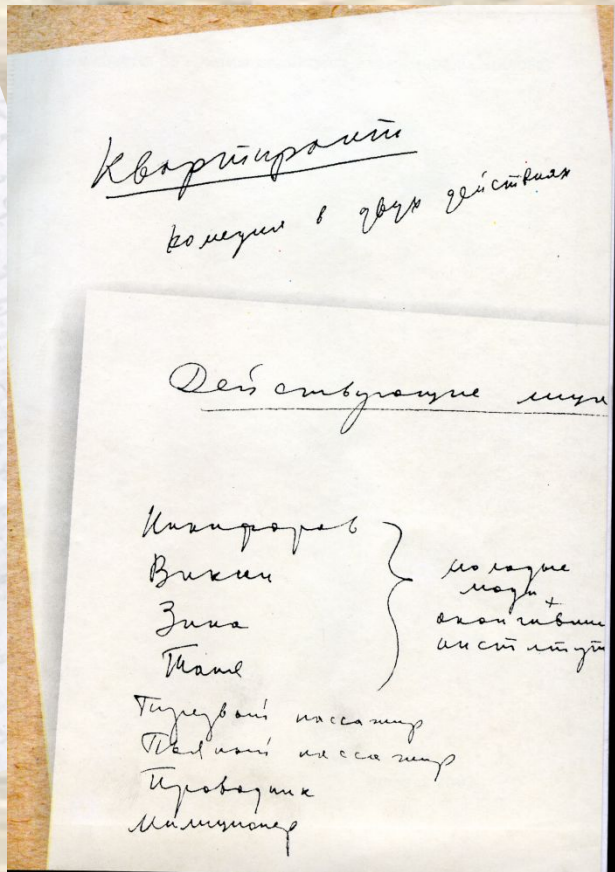 Квартирант
комедия в двух действиях
Действующие лица
Никифоров
Викин
Зина
Таня
молодые
люди
окончившие
институт
Трезвый пассажир
Пьяный пассажир
Проводник
Милиционер